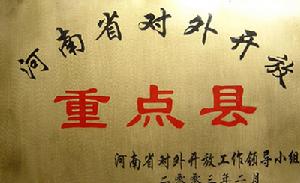 河南省对外开放
重点县
河南省对外开放工作领导小组
二〇〇三年二月